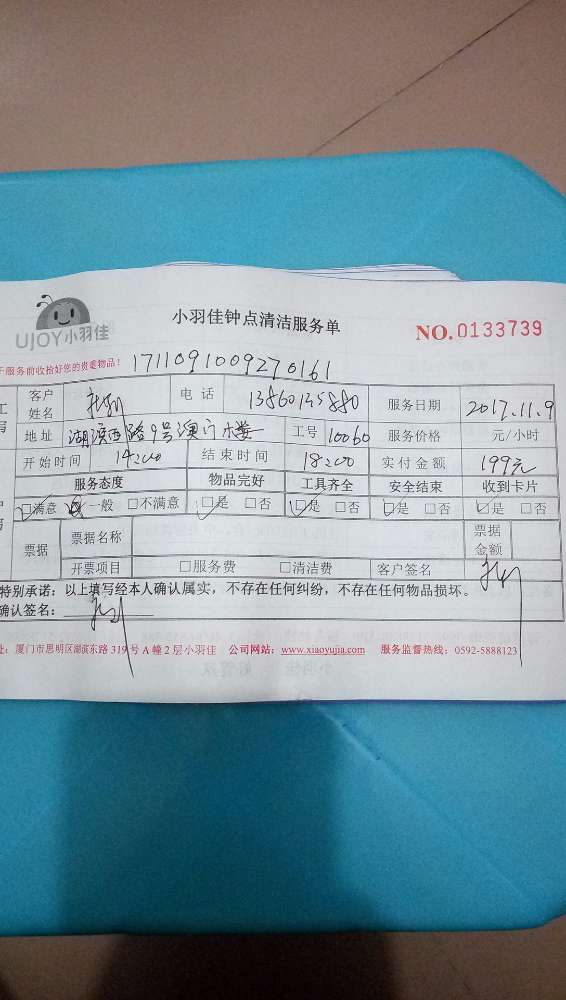 UJOY小羽佳
小羽佳钟点清洁服务单
NO.0133739
服务前收拾好您的贵重物品!
1711091009270161
客户姓名 电话 13860135880 服务日期 2017.11.9
地址 湖滨西路9号澳门 楼 工号 10060 服务价格 元/小时
开始时间 14:00 结束时间 18:00 实付金额 199元
服务态度 物品完好 工具齐全 安全结束 收到卡片
☑满意 一般 □不满意 ☑是 □否 ☑是 □否 ☑是 □否 ☑是 □否
票据 票据名称 票据金额
开票项目 □服务费 □清洁费 客户签名
特别承诺：以上填写经本人确认属实，不存在任何纠纷，不存在任何物品损坏。
确认签名：
址：厦门市思明区湖滨东路319号A幢2层小羽佳 公司网站：www.xiaoyujia.com 服务监督热线：0592-5888123